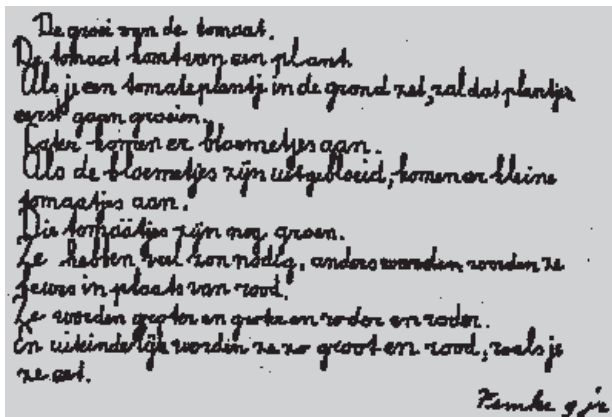 De groei van de tomaat.
De tomaat komt van een plant.
Als je een tomateplantje in de grond zet, zal dat plantje
eerst gaan groeien.
Later komen er bloemetjes aan.
Als de bloemetjes zijn uitgebloeid, komen er kleine
tomaatjes aan.
Die tomaätjes zijn nog groen.
Ze hebben veel zon nodig, anders worden ze
in plaats van rood.
Ze worden groter en groter en roder en roder.
En uiteindelijk worden ze zo groot en rood, zoals je
ze eet.
Femke 9 jr